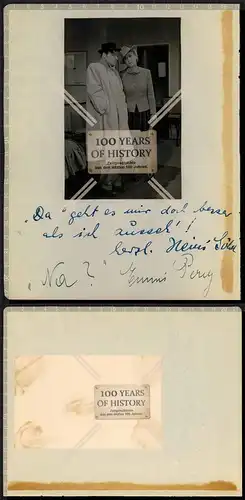 100 YEARS
OF HISTORY
Zeitgeschichte
aus den letzten 100 Jahren
„Da" geht es mir doch besser
als ich ausseh'!
herzl. Heini
„Na?"
100 YEARS
OF HISTORY
Zeitgeschichte
aus den letzten 100 Jahren